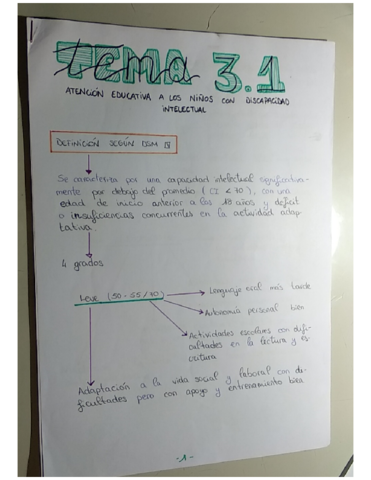 Tema 3.1
ATENCIÓN EDUCATIVA A LOS NIÑOS CON DISCAPACIDAD
INTELECTUAL
DEFINICIÓN SEGÚN DSM
Se caracteriza por una capacidad intelectual significativa-
mente por debajo del promedio (CI < 70), con una
edad de inicio anterior a los 18 años y déficit
o insuficiencias concurrentes en la actividad adap-
tativa.
4 grados
Leve (50-55/70)
Lenguaje oral más tarde
Autonomía personal bien
Actividades escolares con difi-
cultades en la lectura y es-
critura
Adaptación a la vida social y laboral con di-
ficultades pero con apoyo y entrenamiento bien
-1-